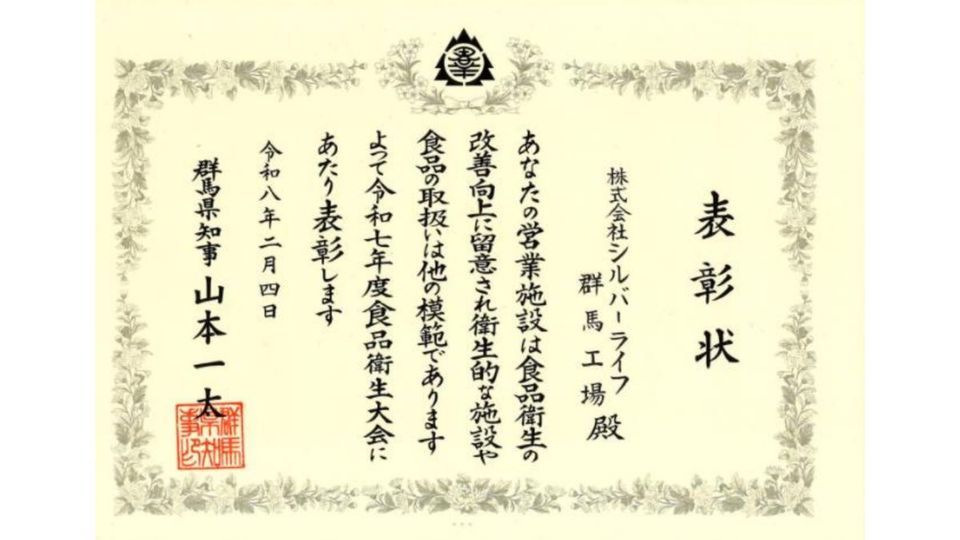 表彰状
株式会社シルバーライフ
群馬工場殿
あなたの営業施設は食品衛生の
改善向上に留意され衛生的な施設や
食品の取扱いは他の模範であります
よって令和七年度食品衛生大会に
あたり表彰します
令和八年二月四日
群馬県知事 山本一太
群馬県知事印